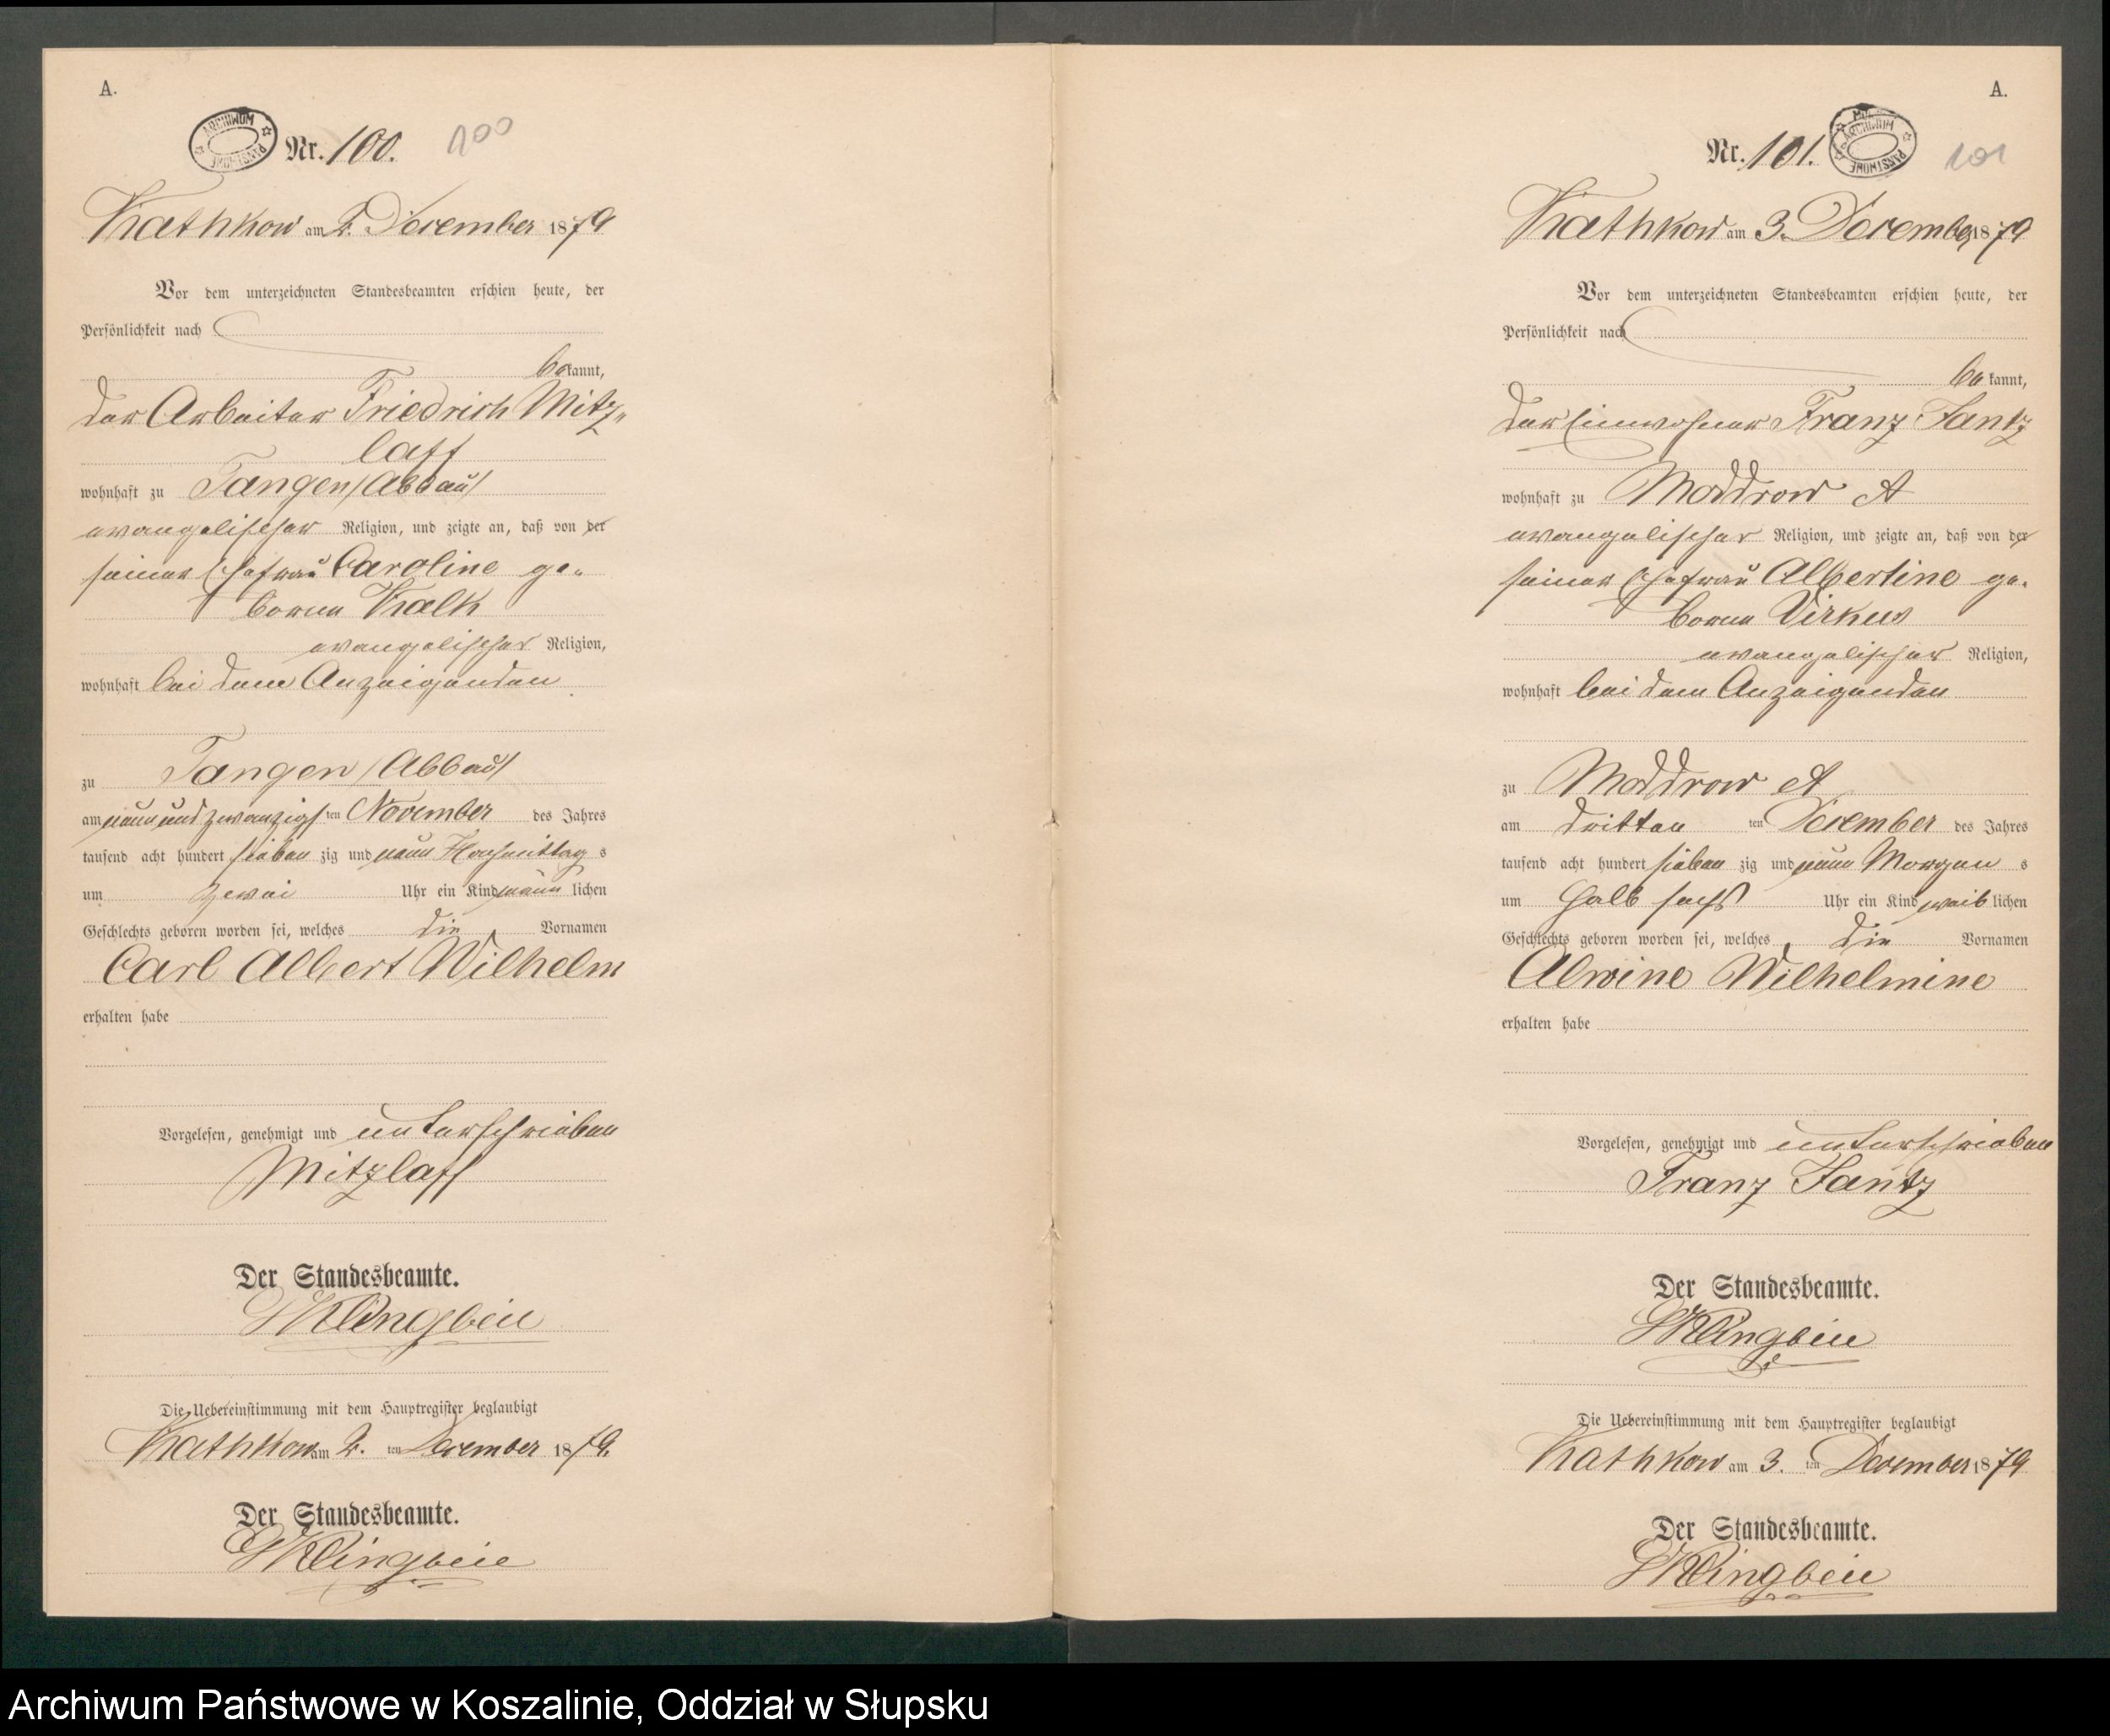 A.
ARCHIWUM PAŃSTWOWE
Nr. 100. 100
Kathkow am 2. December 1879
Vor dem unterzeichneten Standesbeamten erschien heute, der
Persönlichkeit nach
bekannt,
der Arbeiter Friedrich Mitz„
laff
wohnhaft zu Tangen /Abbau/
evangelischer Religion, und zeigte an, daß von der
seiner Ehefrau Caroline ge„
borne Kalk
evangelischer Religion,
wohnhaft bei dem Anzeigenden
zu Tangen /Abbau/
am neunundzwanzigsten November des Jahres
tausend acht hundert siebenzig und neun Nachmittags
um zwei Uhr ein Kind männlichen
Geschlechts geboren worden sei, welches die Vornamen
Carl Albert Wilhelm
erhalten habe
Vorgelesen, genehmigt und unterschrieben
Mitzlaff
Der Standesbeamte.
Klingbeil
Die Uebereinstimmung mit dem Hauptregister beglaubigt
Kathkow am 2. ten December 1879.
Der Standesbeamte.
Klingbeil
A.
Nr. 101. ARCHIWUM PAŃSTWOWE 101
Kathkow am 3. December 1879
Vor dem unterzeichneten Standesbeamten erschien heute, der
Persönlichkeit nach
bekannt,
der Einwohner Franz Jantz
wohnhaft zu Moddrow A
evangelischer Religion, und zeigte an, daß von der
seiner Ehefrau Albertine ge„
borne Virkus
evangelischer Religion,
wohnhaft bei dem Anzeigenden
zu Moddrow A
am dritten ten December des Jahres
tausend acht hundert siebenzig und neun Morgens
um halb sechs Uhr ein Kind weiblichen
Geschlechts geboren worden sei, welches die Vornamen
Alwine Wilhelmine
erhalten habe
Vorgelesen, genehmigt und unterschrieben
Franz Jantz
Der Standesbeamte.
Klingbeil
Die Uebereinstimmung mit dem Hauptregister beglaubigt
Kathkow am 3. ten December 1879
Der Standesbeamte.
Klingbeil
Archiwum Państwowe w Koszalinie, Oddział w Słupsku